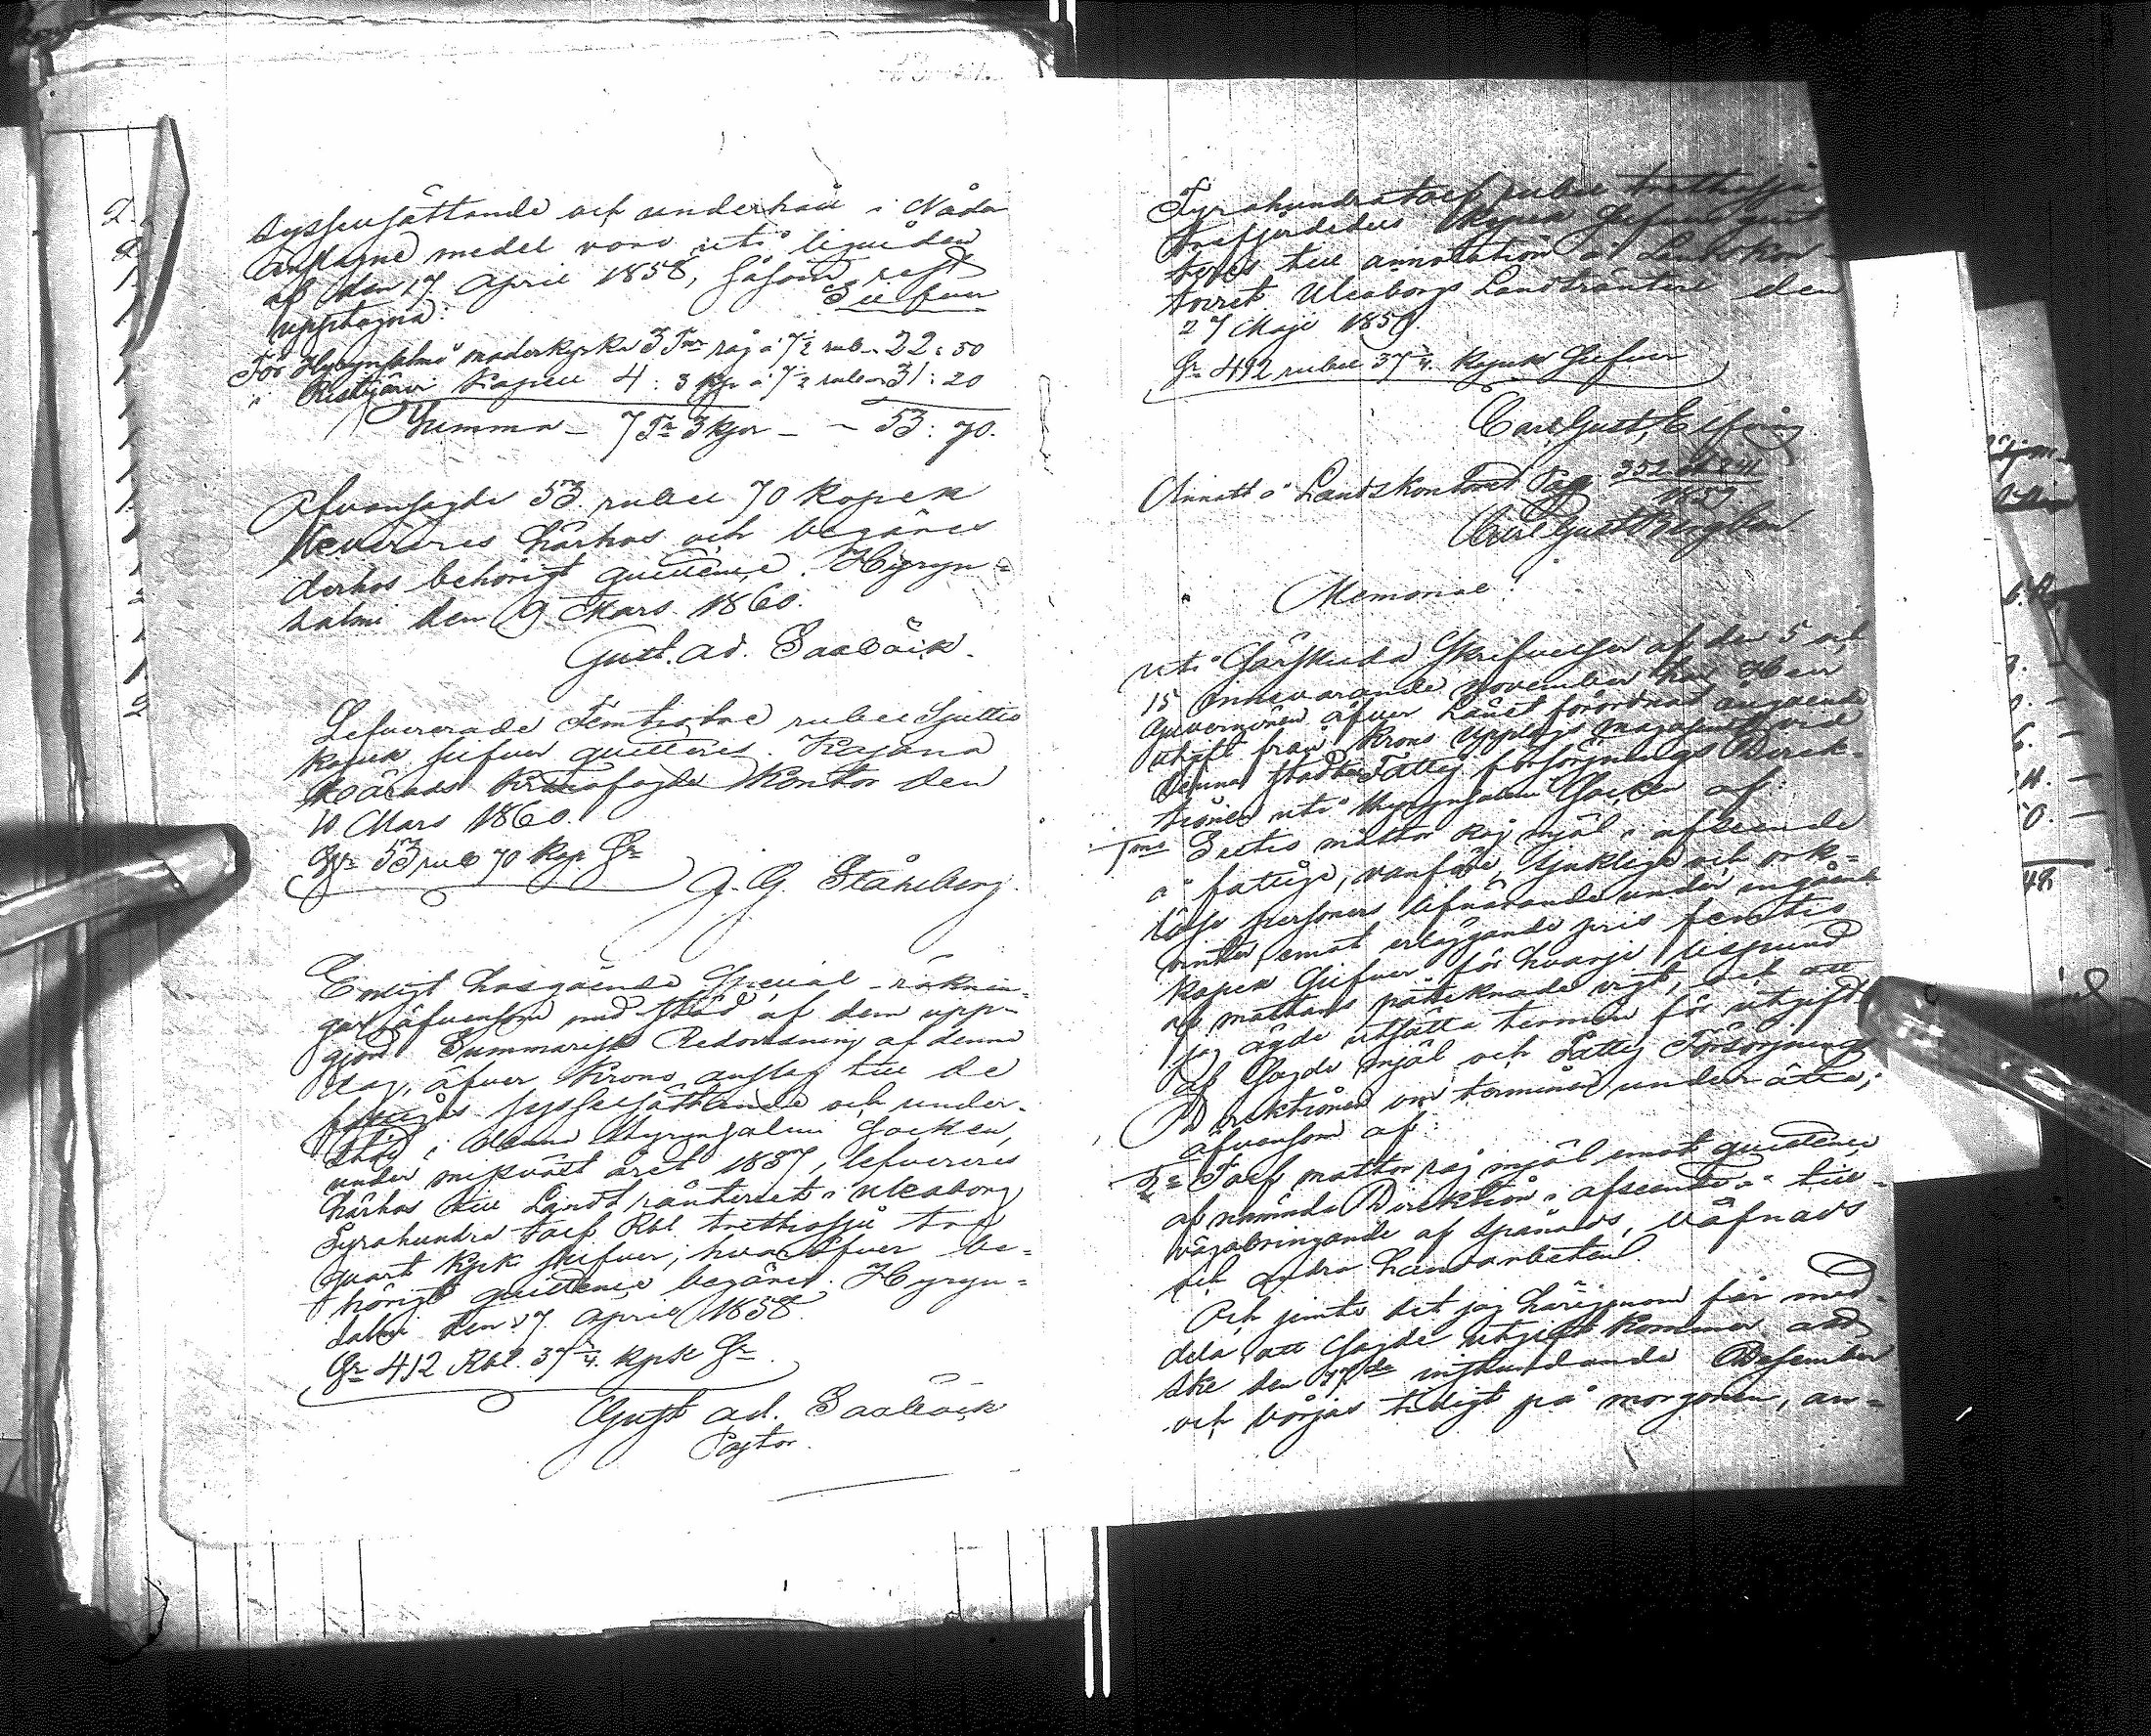 sysselsättande och underhåll i Nåder
anslagne medel voro uti liquiden
af den 17 April 1858, såsom rest
upptagna: Silfver
För Hyrynsalmi moderkyrka 3 Tnr råg à 7 1/2 rub. 22:50
" Ristijärvi Kapell 4: 3 kpr à 7 1/2 rub 31:20
Summa 7 Tr 3 kpr - - 53:70.
Ofvansagde 53 rubel 70 kopek
levereres härhos och begäres
derhos behörigt quittence. Hyryn-
salmi den 9 Mars 1860.
Gust. Ad.
Lefvererade Femtiotre rubel Sjuttio
kopek silfver quitteres. Kajana
Härads Kronofogde Kontor den
10 Mars 1860.
Sr 53 rub 70 kop Sr
J. G. Ståhlberg.
Enligt härgående Special-räknin-
gar äfvensom med stöd af dem upp-
gjord Summarisk Redovisning af denna
dag, öfver Krono anslag till de
fattigas sysselsättande och under-
stöd i denna Hyrynsalmi Socken,
under missväxt året 1857, lefvereres
härhos till Landtränteriet i Uleåborg
Fyrahundra tolf Rbl. trettiosju tre
quart kpk silfver, hvaröfver be-
hörigt quittence begäres. Hyryn-
salmi den 17 April 1858.
Sr 412 Rbl. 37 3/4 kpk Sr
Gust. Ad.
Pastor.
Fyrahundratolf rubel trettiosju
trefjerdedels kopek silfver quit-
teres till annotation å Landskon-
toiret. Uleåborgs Landtränteri den
27 Maji 1859.
Sr 412 rubel 37 3/4 kopek Silfver
Carl Gust. Elfving
Annott. å Landskontoret Pag 352
1859
Carl Gust
Memorial!
Uti Särskilda Skrifvelser af den 5 och
15 innevarande November har Herr
Guvernören öfver Länet förordnat angående
utgift från Krono Upplags magasinet vid
denna stad till Fattig försörjnings Direk-
tionen uti Hyrynsalmi Socken af:
1mo Sextio mattor råg mjöl i afseende
å fattige, vanföre, sjuklige och ork-
löse personers lifnärande under ingående
vinter, emot erläggande pris femtio
kopek Silfver för hvarje lispund
af mattans påtecknade vigt, och att
jag ägde utsätta termin för utgift
af sagde mjöl och Fattig Försörjnings
Direktionen om terminen underrätta;
äfvensom af:
2o Tolf mattor råg mjöl emot quittence
af nämnda Direktion i afseende å till-
vägabringande af spånads, väfnads
och andra handarbeten.
Och jemte det jag härigenom får med-
dela att sagde utgift kommer att
ske den 17de instundande December
och börjas tidigt på morgonen, an-